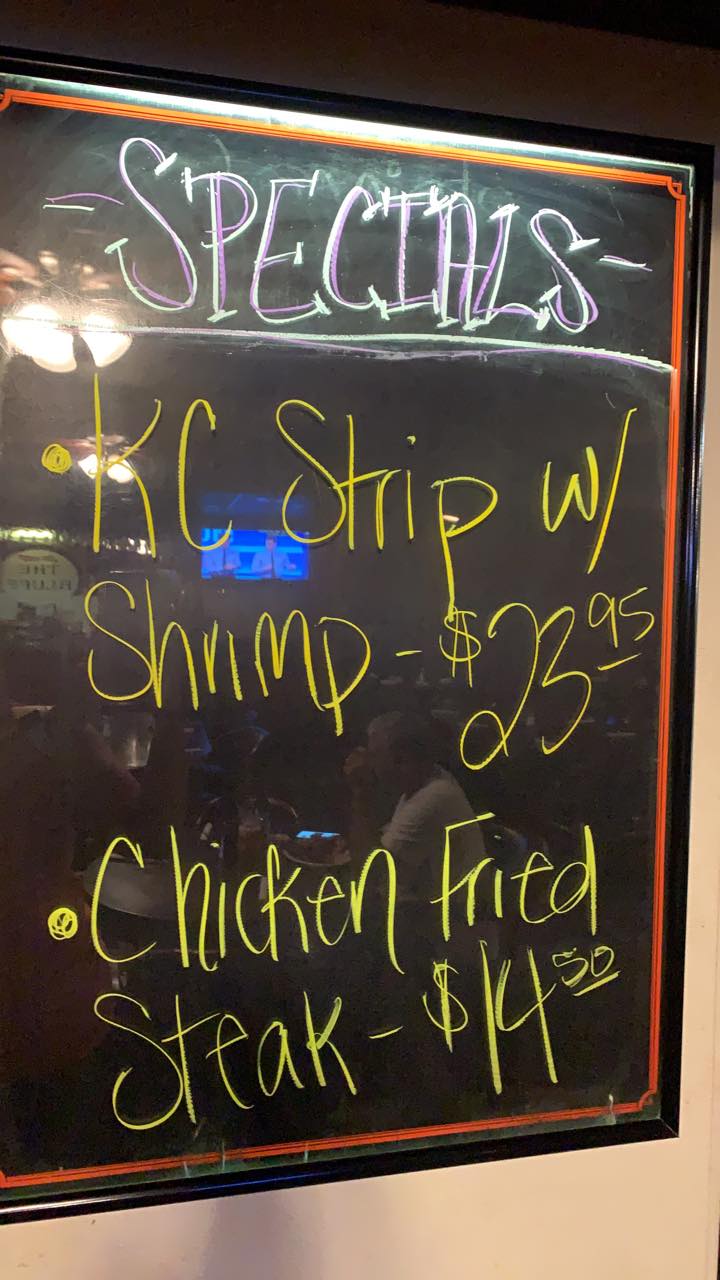 -SPECIALS-
• KC Strip w/
Shrimp - $23 95
• Chicken Fried
Steak - $14 50